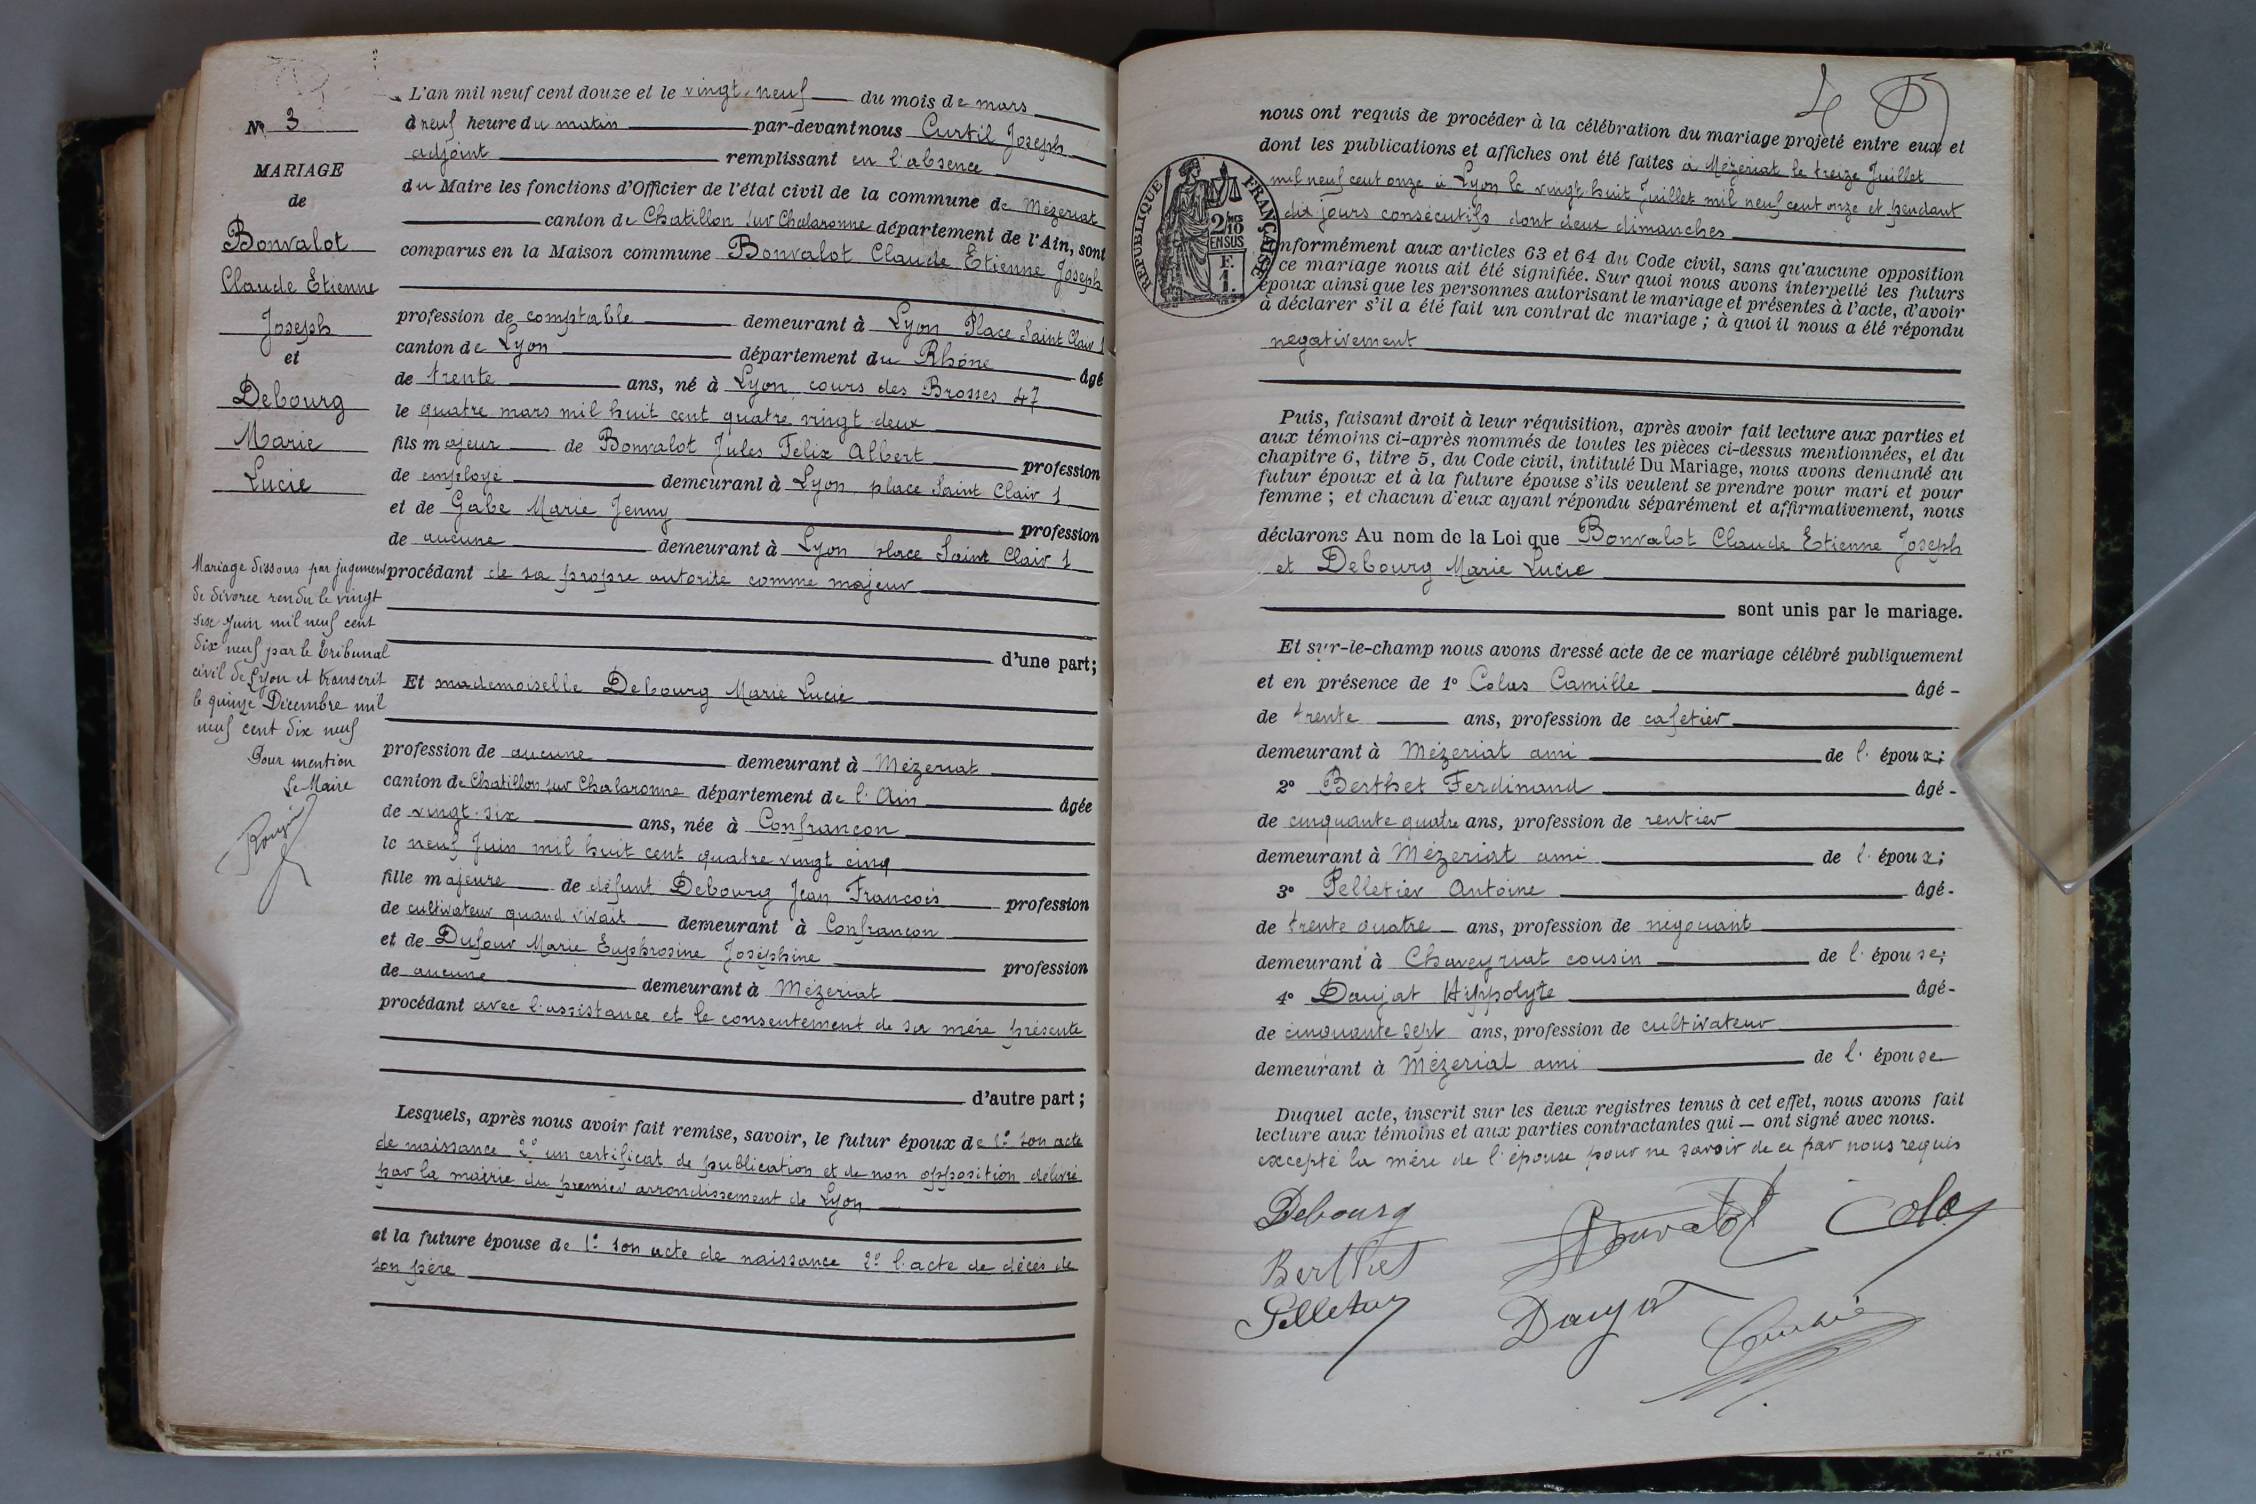 L'an mil neuf cent douze et le vingt-neuf du mois de mars
à neuf heure du matin par-devant nous Curtil Joseph
adjoint remplissant en l'absence
du Maire les fonctions d'Officier de l'état civil de la commune de Mézeriat
canton de Chatillon sur Chalaronne département de l'Ain, sont
comparus en la Maison commune Bonvalot Claude Etienne Joseph
profession de comptable demeurant à Lyon Place Saint Clair 1
canton de Lyon département du Rhône âgé
de trente ans, né à Lyon, cours des Brosses 47
le quatre mars mil huit cent quatre vingt deux
fils majeur de Bonvalot Jules Félix Albert profession
de employé demeurant à Lyon place Saint Clair 1
et de Gabe Marie Jenny profession
de aucune demeurant à Lyon place Saint Clair 1
procédant de sa propre autorité comme majeur
d'une part;
Et mademoiselle Debourg Marie Lucie
profession de aucune demeurant à Mézeriat
canton de Chatillon sur Chalaronne département de l'Ain âgée
de vingt-six ans, née à Confrançon
le neuf Juin mil huit cent quatre vingt cinq
fille majeure de défunt Debourg Jean François profession
de cultivateur quand vivait demeurant à Confrançon
et de Dufour Marie Euphrosine Joséphine profession
de aucune demeurant à Mézeriat
procédant avec l'assistance et le consentement de sa mère présente
d'autre part;
Lesquels, après nous avoir fait remise, savoir, le futur époux de 1° son acte
de naissance 2° un certificat de publication et de non opposition délivré
par la mairie du premier arrondissement de Lyon
et la future épouse de 1° son acte de naissance 2° l'acte de décès de
son père
N° 3
MARIAGE
de
Bonvalot
Claude Etienne
Joseph
et
Debourg
Marie
Lucie
Mariage dissous par jugement
de divorce rendu le vingt
six Juin mil neuf cent
dix neuf par le tribunal
civil de Lyon et transcrit
le quinze Décembre mil
neuf cent dix neuf
Pour mention
Le Maire
4
nous ont requis de procéder à la célébration du mariage projeté entre eux et
dont les publications et affiches ont été faites à Mézeriat le treize Juillet
mil neuf cent onze à Lyon le vingt-huit Juillet mil neuf cent onze et pendant
dix jours consécutifs dont deux dimanches
nformément aux articles 63 et 64 du Code civil, sans qu'aucune opposition
ce mariage nous ait été signifiée. Sur quoi nous avons interpellé les futurs
époux ainsi que les personnes autorisant le mariage et présentes à l'acte, d'avoir
à déclarer s'il a été fait un contrat de mariage; à quoi il nous a été répondu
négativement
REPUBLIQUE FRANÇAISE
2 MES
10
EN SUS
F.
1.
Puis, faisant droit à leur réquisition, après avoir fait lecture aux parties et
aux témoins ci-après nommés de toutes les pièces ci-dessus mentionnées, et du
chapitre 6, titre 5, du Code civil, intitulé Du Mariage, nous avons demandé au
futur époux et à la future épouse s'ils veulent se prendre pour mari et pour
femme; et chacun d'eux ayant répondu séparément et affirmativement, nous
déclarons Au nom de la Loi que Bonvalot Claude Etienne Joseph
et Debourg Marie Lucie
sont unis par le mariage.
Et sur-le-champ nous avons dressé acte de ce mariage célébré publiquement
et en présence de 1° Colas Camille âgé-
de trente ans, profession de cafetier
demeurant à Mézeriat ami de l'époux;
2° Berthet Ferdinand âgé-
de cinquante quatre ans, profession de rentier
demeurant à Mézeriat ami de l'époux;
3° Pelletier Antoine âgé-
de trente quatre ans, profession de négociant
demeurant à Chaveyriat cousin de l'épouse;
4° Daujat Hippolyte âgé-
de cinquante sept ans, profession de cultivateur
demeurant à Mézeriat ami de l'épouse
Duquel acte, inscrit sur les deux registres tenus à cet effet, nous avons fait
lecture aux témoins et aux parties contractantes qui — ont signé avec nous.
excepté la mère de l'épouse pour ne savoir de ce par nous requis
Debourg Bonvalot Colas
Berthet
Pelletier Daujat